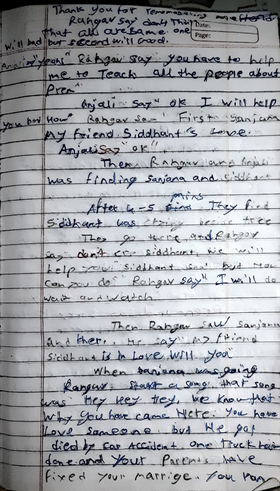 Thank you for remembering me
Rahgav say" don't think
Date:
That all are same one
Page:
will bad but second will Good.
Anjali" yeah" Rahgav say you have to help
me to Teach all the people about
Prem"
Anjali say" OK I will help
you but How" Rahgav say" First sanjana
My friend Siddhant's Love.
Anjali say "OK"
Then Rahgav and Anjali
was finding sanjana and siddhant
mins
After 4-5 They find
Siddhant was crying beside tree
They go there and Rahgav
say don't cry siddhant, we will
help you" siddhant say but How
can you do" Rahgav say" I will do
wait and watch
Then Rahgav saw sanjana
and there. He say" my friend
Siddhant is in Love will you"
When sanjana was going
Rahgav start a song, that song
was "Hey Hey Hey, we know that
why you have came Here. You have
Love someone but He got
died by car Accident. one Truck
done and your Parents have
fixed your marrige. You ran